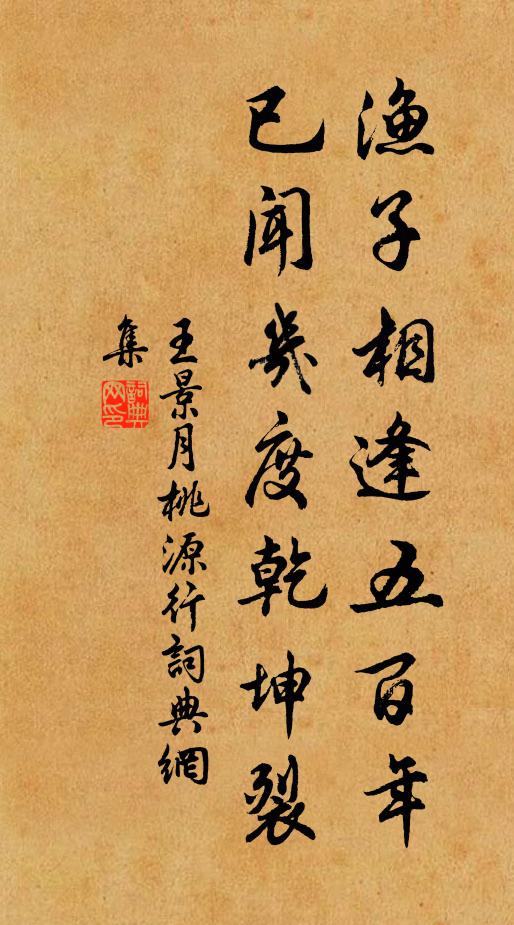 漁子相逢五百年
已聞幾度乾坤裂
王景月桃源行詞典網
集
詞典
網印